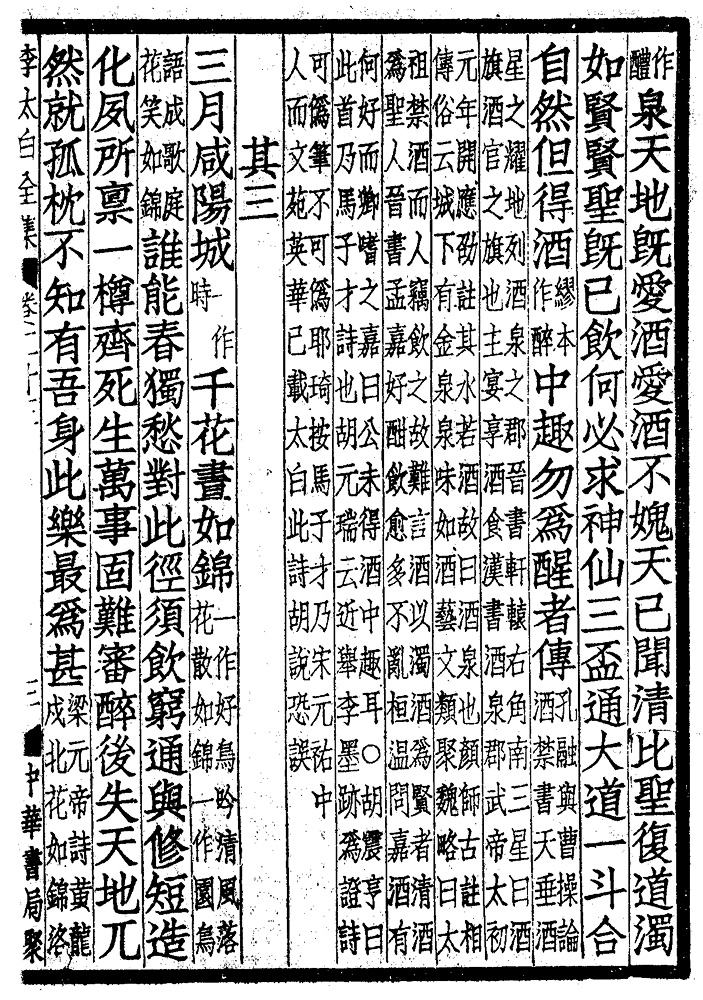 作醴泉天地旣愛酒愛酒不媿天已聞清比聖復道濁
如賢賢聖旣已飮何必求神仙三盃通大道一斗合
自然但得酒繆本作醉中趣勿爲醒者傳孔融與曹操論酒禁書天垂酒
星之耀地列酒泉之郡晉書軒轅右角南三星曰酒旗酒官之旗也主宴享酒食漢書酒泉郡武帝太初
元年開應劭註其水若酒故曰酒泉也顏師古註相傳俗云城下有金泉泉味如酒藝文類聚魏略曰太
祖禁酒而人竊飮之故難言酒以濁酒爲賢者清酒爲聖人晉書孟嘉好酣飮愈多不亂桓温問嘉酒有
何好而卿嗜之嘉曰公未得酒中趣耳○胡震亨曰此首乃馬子才詩也胡元瑞云近舉李墨跡爲證詩
可僞筆不可僞耶琦按馬子才乃宋元祐中人而文苑英華已載太白此詩胡說恐誤
其三
三月咸陽城一作時千花晝如錦一作好鳥吟清風落花散如錦一作園鳥
語成歌庭花笑如錦誰能春獨愁對此徑須飮窮通與修短造
化夙所禀一樽齊死生萬事固難審醉後失天地兀
然就孤枕不知有吾身此樂最爲甚梁元帝詩黄龍戍北花如錦洛
李太白全集 卷二十三 三 中華書局聚